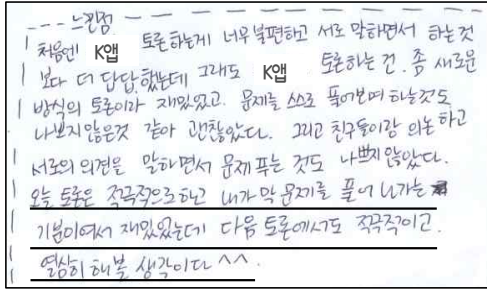 ---느낀점
처음엔 K앱 토론하는게 너무 불편하고 서로 말하면서 하는것
보다 더 답답했는데 그래도 K앱 토론하는건 좀 새로운
방식의 토론이라 재밌었고. 문제를 스스로 풀어보며 하는것도
나쁘지않은것 같아 괜찮았다. 그리고 친구들이랑 의논하고
서로의 의견을 말하면서 문제 푸는 것도 나쁘지 않았다.
오늘 토론은 적극적으로 하고 내가 막 문제를 풀어 나가는
기분이여서 재밌었는데 다음 토론에서도 적극적이고.
열심히 해볼 생각이다 ^^.